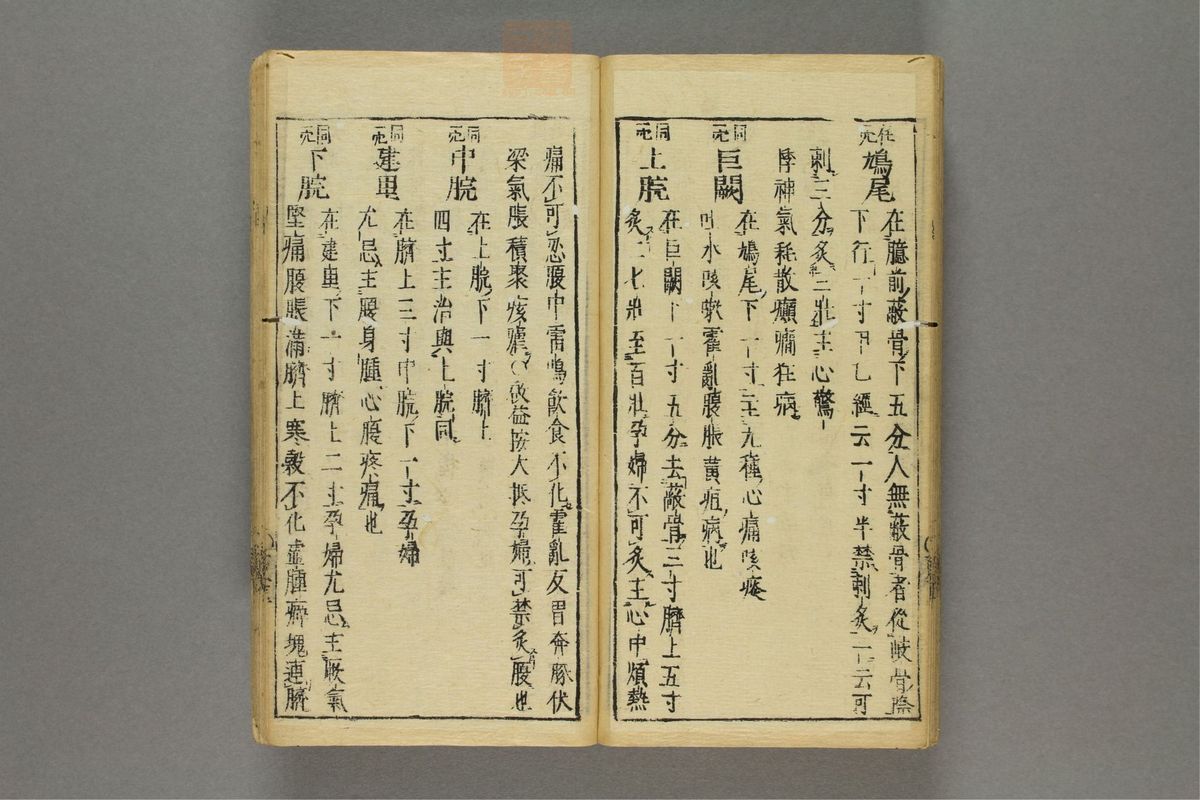 任穴 鳩尾 在臆前蔽骨下五分人無蔽骨者從岐骨際
下行一寸甲乙經云一寸半禁刺灸一云可
刺三分灸三壯主心驚
悸神氣耗散癲癇狂病
同穴 巨闕 在鳩尾下一寸主九種心痛痰癊
吐水咳嗽霍亂腹脹黃疸病也
同穴 上脘 在巨闕下一寸五分去蔽骨三寸臍上五寸
灸二七壯至百壯孕婦不可灸主心中煩熱
痛不可忍腹中雷鳴飲食不化霍亂反胃奔豚伏
梁氣脹積聚痰瘧〇啟益按大抵孕婦可禁灸腹也
同穴 中脘 在上脘下一寸臍上
四寸主治與上脘同
同穴 建里 在臍上三寸中脘下一寸孕婦
尤忌主腹身腫心腹疼痛也
同穴 下脘 在建里下一寸臍上二寸孕婦尤忌主厥氣
堅痛腹脹滿臍上寒穀不化虛腫癖塊連臍